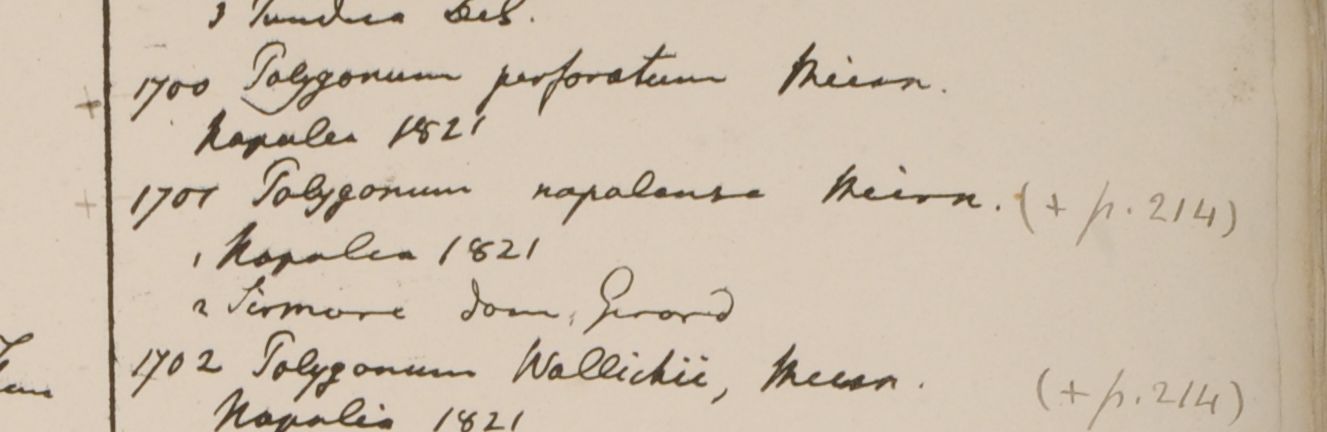 3 Tundua Deb.
1700 Polygonum perforatum Meisn.
Napalea 1821
1701 Polygonum napalense Meisn. (+ p. 214)
1 Napalea 1821
2 Sirmore dom. Gerard
1702 Polygonum Wallichii, Meisn. (+ p. 214)
Napalia 1821